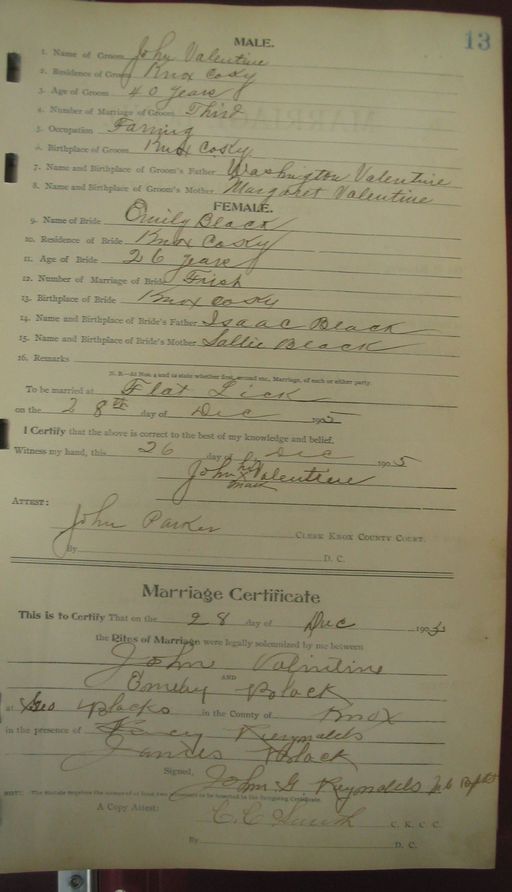 13
MALE.
1. Name of Groom John Valentine
2. Residence of Groom Knox Co Ky
3. Age of Groom 40 years
4. Number of Marriage of Groom Third
5. Occupation Farming
6. Birthplace of Groom Knox Co Ky
7. Name and Birthplace of Groom's Father Washington Valentine
8. Name and Birthplace of Groom's Mother Margaret Valentine
FEMALE.
9. Name of Bride Emily Black
10. Residence of Bride Knox Co Ky
11. Age of Bride 26 years
12. Number of Marriage of Bride First
13. Birthplace of Bride Knox Co Ky
14. Name and Birthplace of Bride's Father Isaac Black
15. Name and Birthplace of Bride's Mother Sallie Black
16. Remarks
N. B.—At Nos. 4 and 12 state whether first, second etc., Marriage, of each or either party.
To be married at Flat Lick
on the 28th day of Dec 1905
I Certify that the above is correct to the best of my knowledge and belief.
Witness my hand, this 26 day of Dec 1905
his
John x Valentine
mark
ATTEST:
John Parker CLERK KNOX COUNTY COURT.
By D. C.
Marriage Certificate
This is to Certify That on the 28 day of Dec 1905
the Rites of Marriage were legally solemnized by me between
John Valintine
AND
Emeley Black
at Geo Blacks in the County of Knox
in the presence of Reynolds
James Black
Signed, John G. Reynolds
NOTE: The Statute requires the names of at least two witnesses to be inserted in the foregoing Certificate.
A Copy Attest: C. C. Smith C. K. C. C.
By D. C.